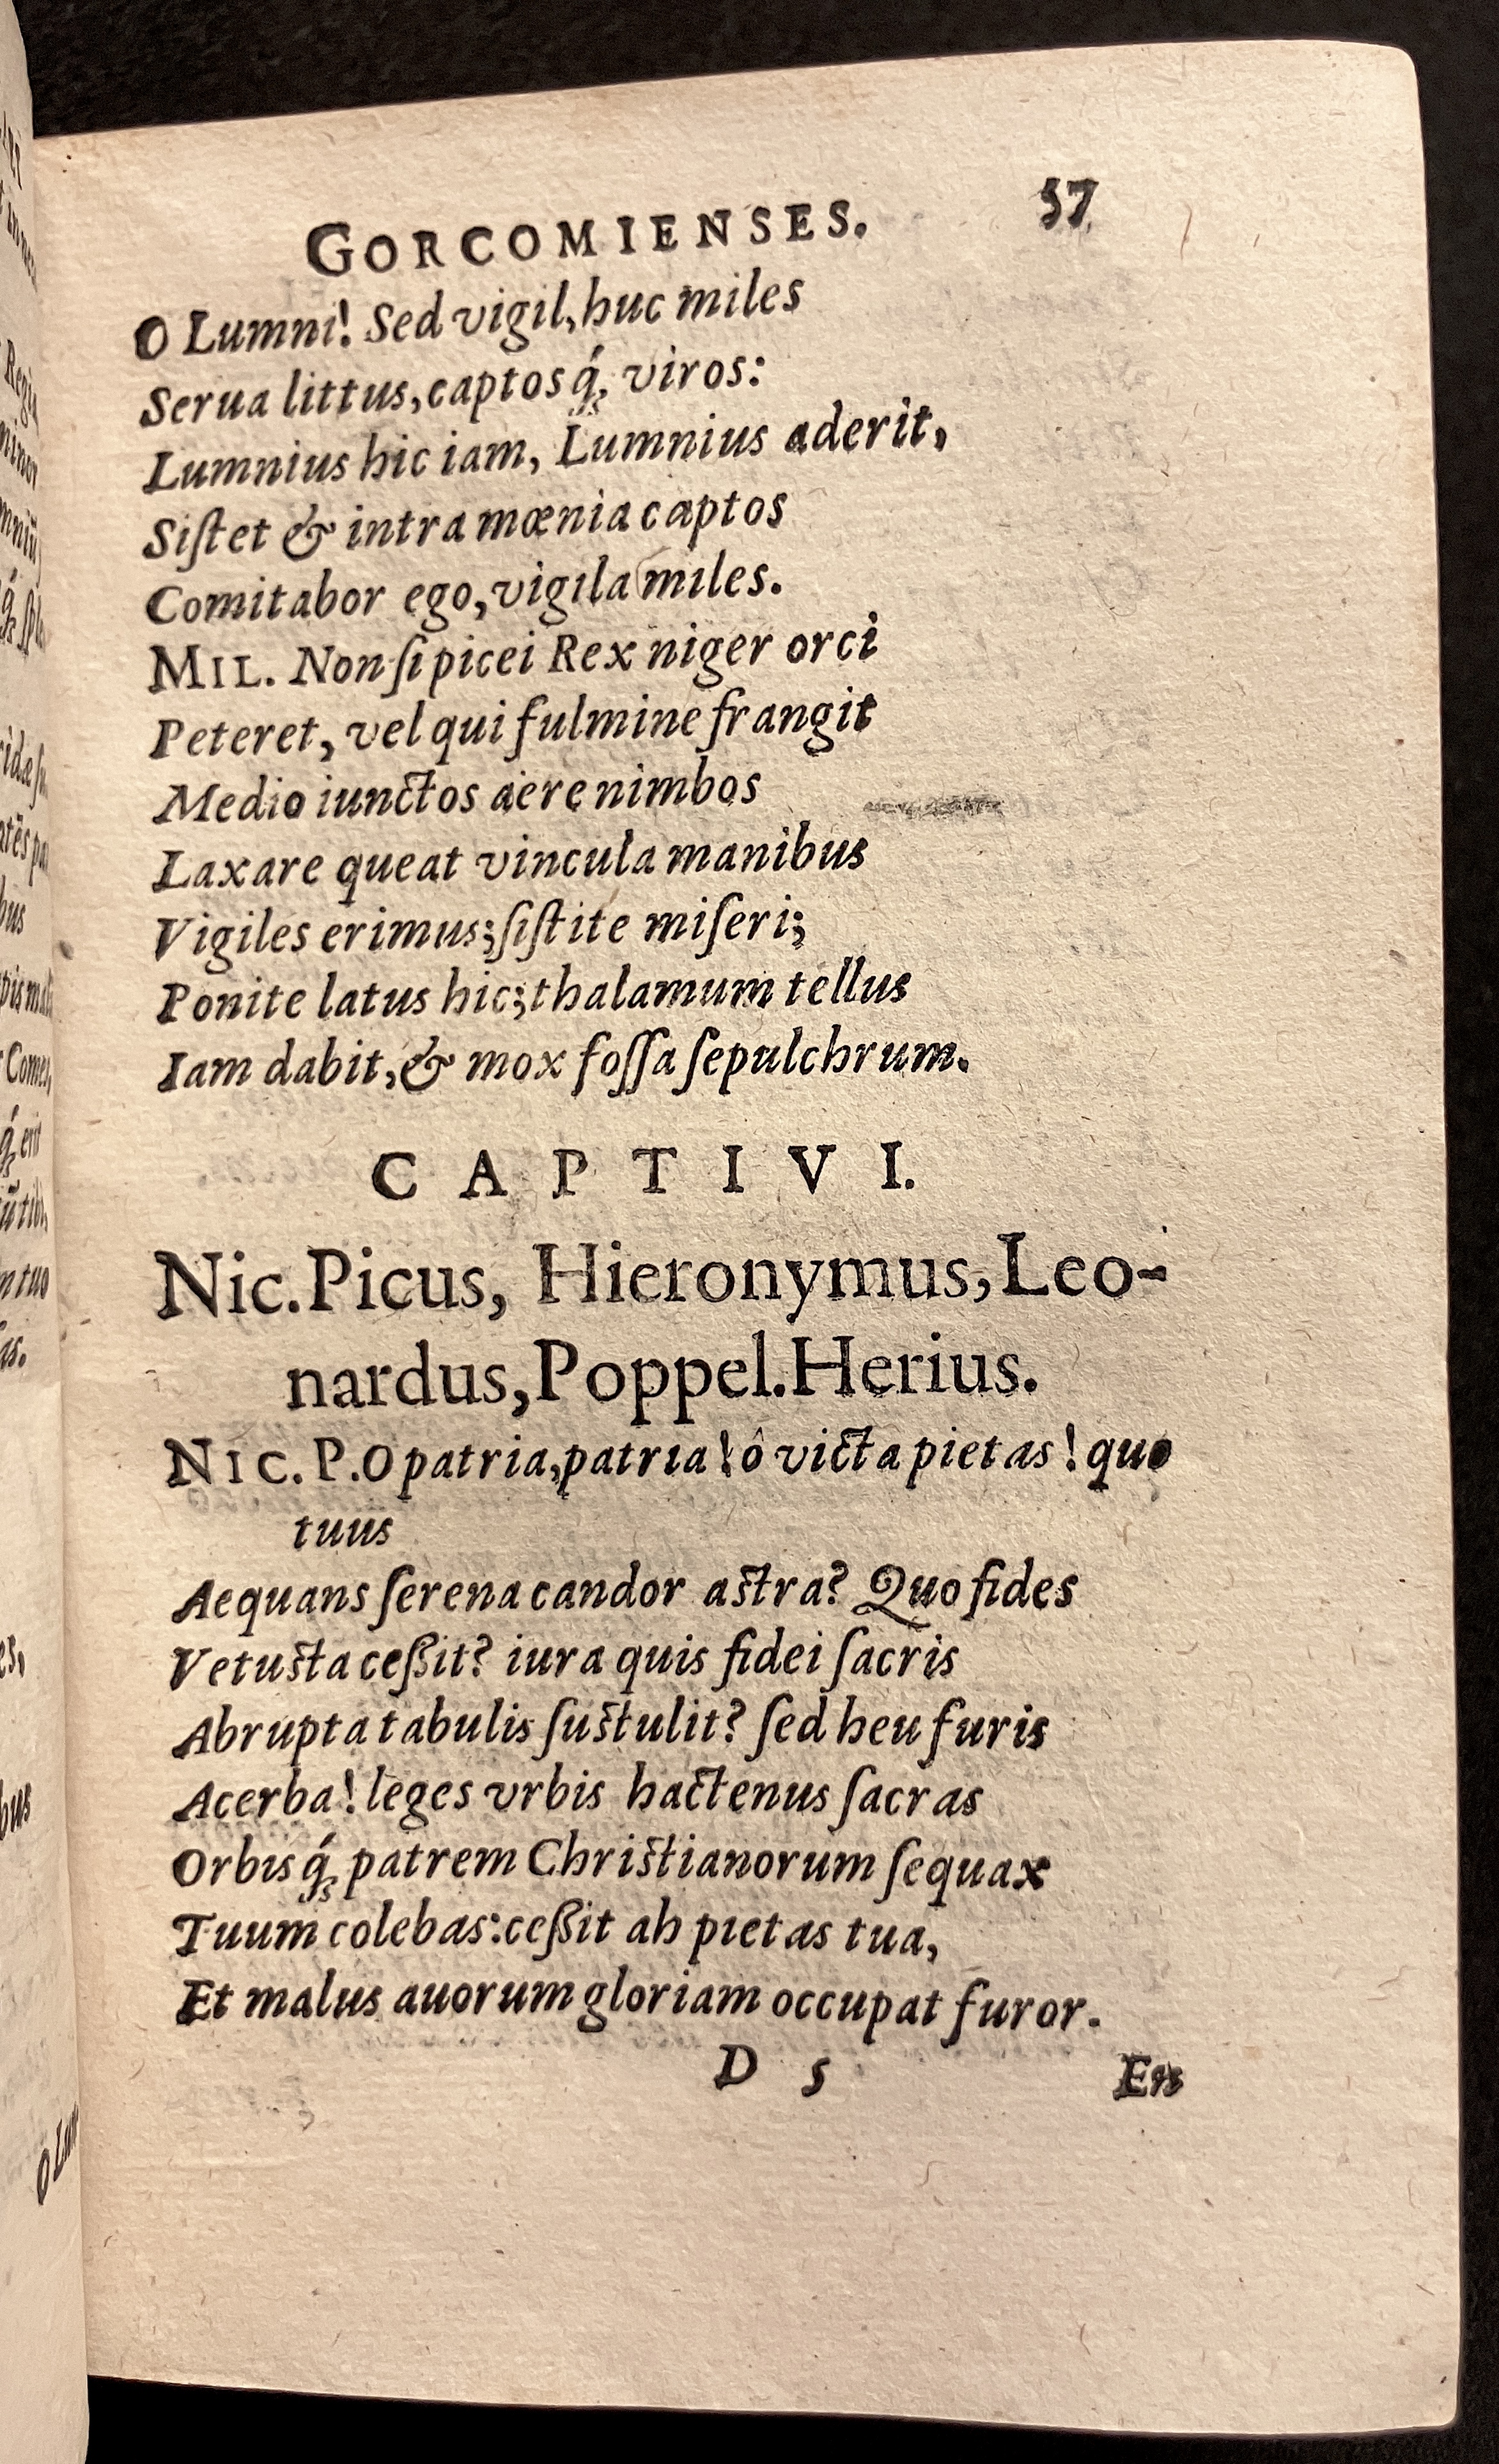 GORCOMIENSES. 57
O Lumni! Sed vigil, huc miles
Serua littus, captosq́; viros:
Lumnius hic iam, Lumnius aderit,
Siſtet & intra mœnia captos
Comitabor ego, vigila miles.
MIL. Non ſi picei Rex niger orci
Peteret, vel qui fulmine frangit
Medio iunctos aëre nimbos
Laxare queat vincula manibus
Vigiles erimus; ſiſtite miſeri;
Ponite latus hic; thalamum tellus
Iam dabit, & mox foſſa ſepulchrum.
CAPTIVI.
Nic. Picus, Hieronymus, Leo-
nardus, Poppel. Herius.
NIC. P. O patria, patria! ô victa pietas! quo
tuus
Aequans ſerena candor aſtra? Quo fides
Vetuſta ceßit? iura quis fidei ſacris
Abrupta tabulis ſuſtulit? ſed heu furis
Acerba! leges vrbis hactenus ſacras
Orbisq́; patrem Chriſtianorum ſequax
Tuum colebas: ceßit ah pietas tua,
Et malus auorum gloriam occupat furor.
D 5 En